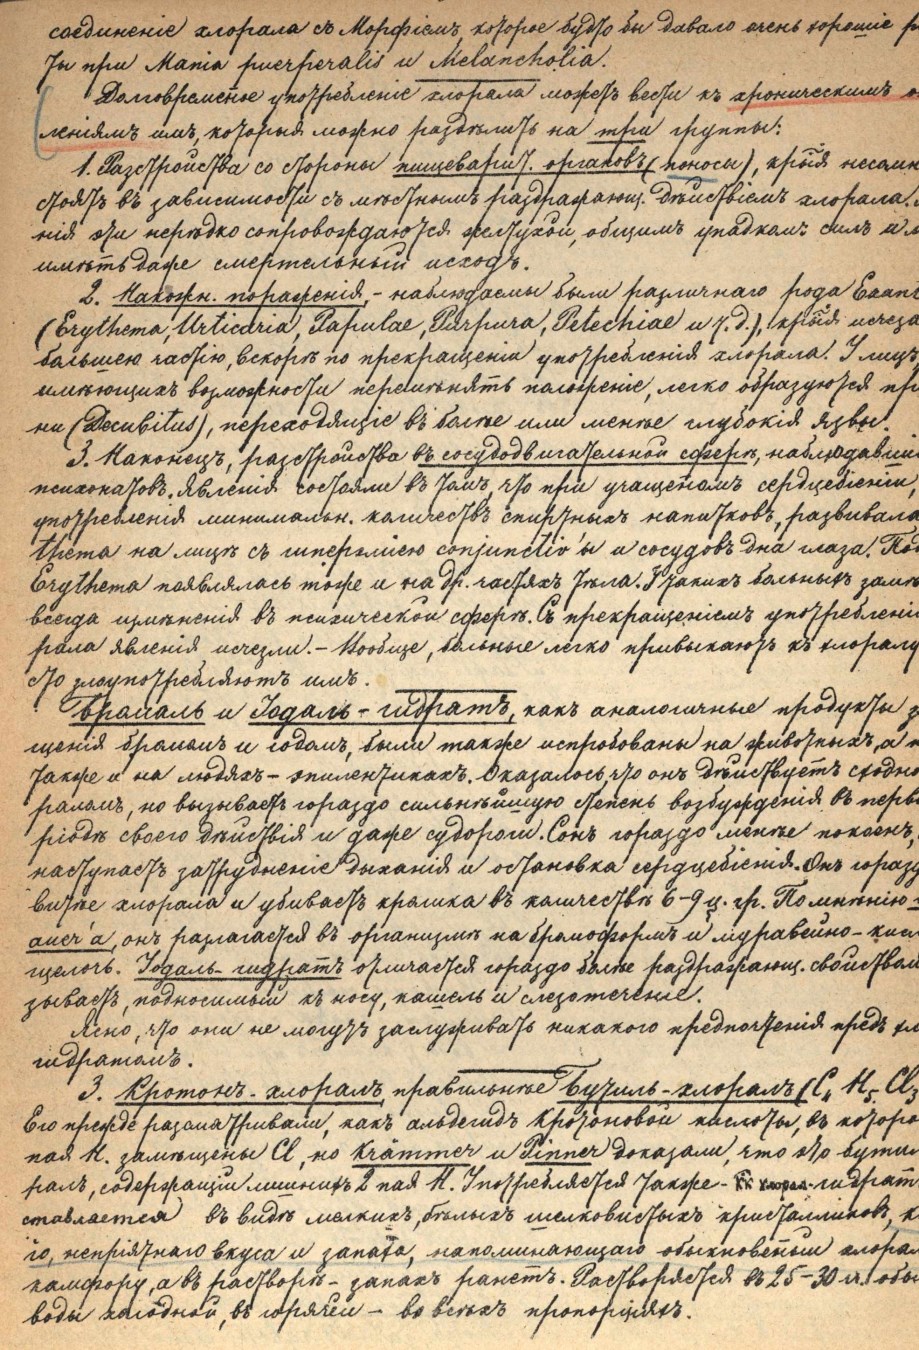 соединеніе хлорала съ Морфіемъ, которое будто бы давало очень хорошіе
ты при Mania puerperalis и Melancholia.
Долговременное употребленіе хлорала можетъ вести къ хроническимъ
леніямъ имъ, которыя можно раздѣлить на три группы:
1. Разстройства со стороны пищеварит. органовъ (поносы), крыя несомн
стоятъ въ зависимости съ мѣстнымъ раздражающ. дѣйствіемъ хлорала.
нія эти нерѣдко сопровождаются желтухой, общимъ упадкомъ силъ и м
имѣть даже смертельный исходъ.
2. Накожн. пораженія, - наблюдаемы были различнаго рода Exant
(Erythema, Urticaria, Papulae, Purpura, Petechiae и т.д.), крыя исчеза
большею частію, вскорѣ по прекращеніи употребленія хлорала. У лицъ,
имѣющихъ возможности перемѣнять положеніе, легко образуются при
ни (Decubitus), переходящіе въ болѣе или менѣе глубокія язвы.
3. Наконецъ, разстройства въ сосудодвигательной сферѣ, наблюдавші
психопатовъ. Явленія состояли въ томъ, что при учащенномъ сердцебіеніи,
употребленія минимальн. количествъ спиртныхъ напитковъ, развивала
thema на лицѣ съ гипереміею conjunctiv'ы и сосудовъ дна глаза. Под
Erythema появлялась тоже и на др. частяхъ тѣла. У такихъ больныхъ замѣ
всегда измѣненія въ психической сферѣ. Съ прекращеніемъ употребленія
рала явленія исчезли. - Вообще, больные легко привыкаютъ къ хлоралу
сто злоупотребляютъ имъ.
Бромаль и Іодаль-гидратъ, какъ аналогичные продукты з
щенія бромомъ и іодомъ, были также испробованы на животныхъ, а п
также и на людяхъ - эпилептикахъ. Оказалось, что онъ дѣйствуетъ сходно
раломъ, но вызываетъ гораздо сильнѣйшую степень возбужденія въ перв
ріодѣ своего дѣйствія и даже судороги. Сонъ гораздо менѣе покоенъ,
наступаетъ затрудненіе дыханія и остановка сердцебіенія. Онъ горазд
витѣе хлорала и убиваетъ кролика въ количествѣ 6-9 ц. гр. По мнѣнію
онъ разлагается въ организмѣ на бромоформъ и муравейно-кис
щелочь. Іодаль-гидратъ отличается гораздо болѣе раздражающ. свойствам
зываетъ, подносимый къ носу, кашель и слезотеченіе.
Ясно, что они не могутъ заслуживать никакого предпочтенія предъ хл
гидратомъ.
3. Кротонъ-хлоралъ, правильнѣе Бутиль-хлоралъ (C4 H5 Cl3
Его прежде разсматривали, какъ альдегидъ кротоновой кислоты, въ которо
пая H. замѣщены Cl, но Krämmer и Pinner доказали, что это бутил
ралъ, содержащій лишнихъ 2 пая H. Употребляется также - гидратъ
ставляется въ видѣ мелкихъ, бѣлыхъ шелковистыхъ кристалликовъ,
го, непріятнаго вкуса и запаха, напоминающаго обыкновенный хлорал
камфору, а въ растворѣ - запахъ ранетъ. Растворяется въ 25-30 ч. обы
воды холодной, въ горячей - во всѣхъ пропорціяхъ.